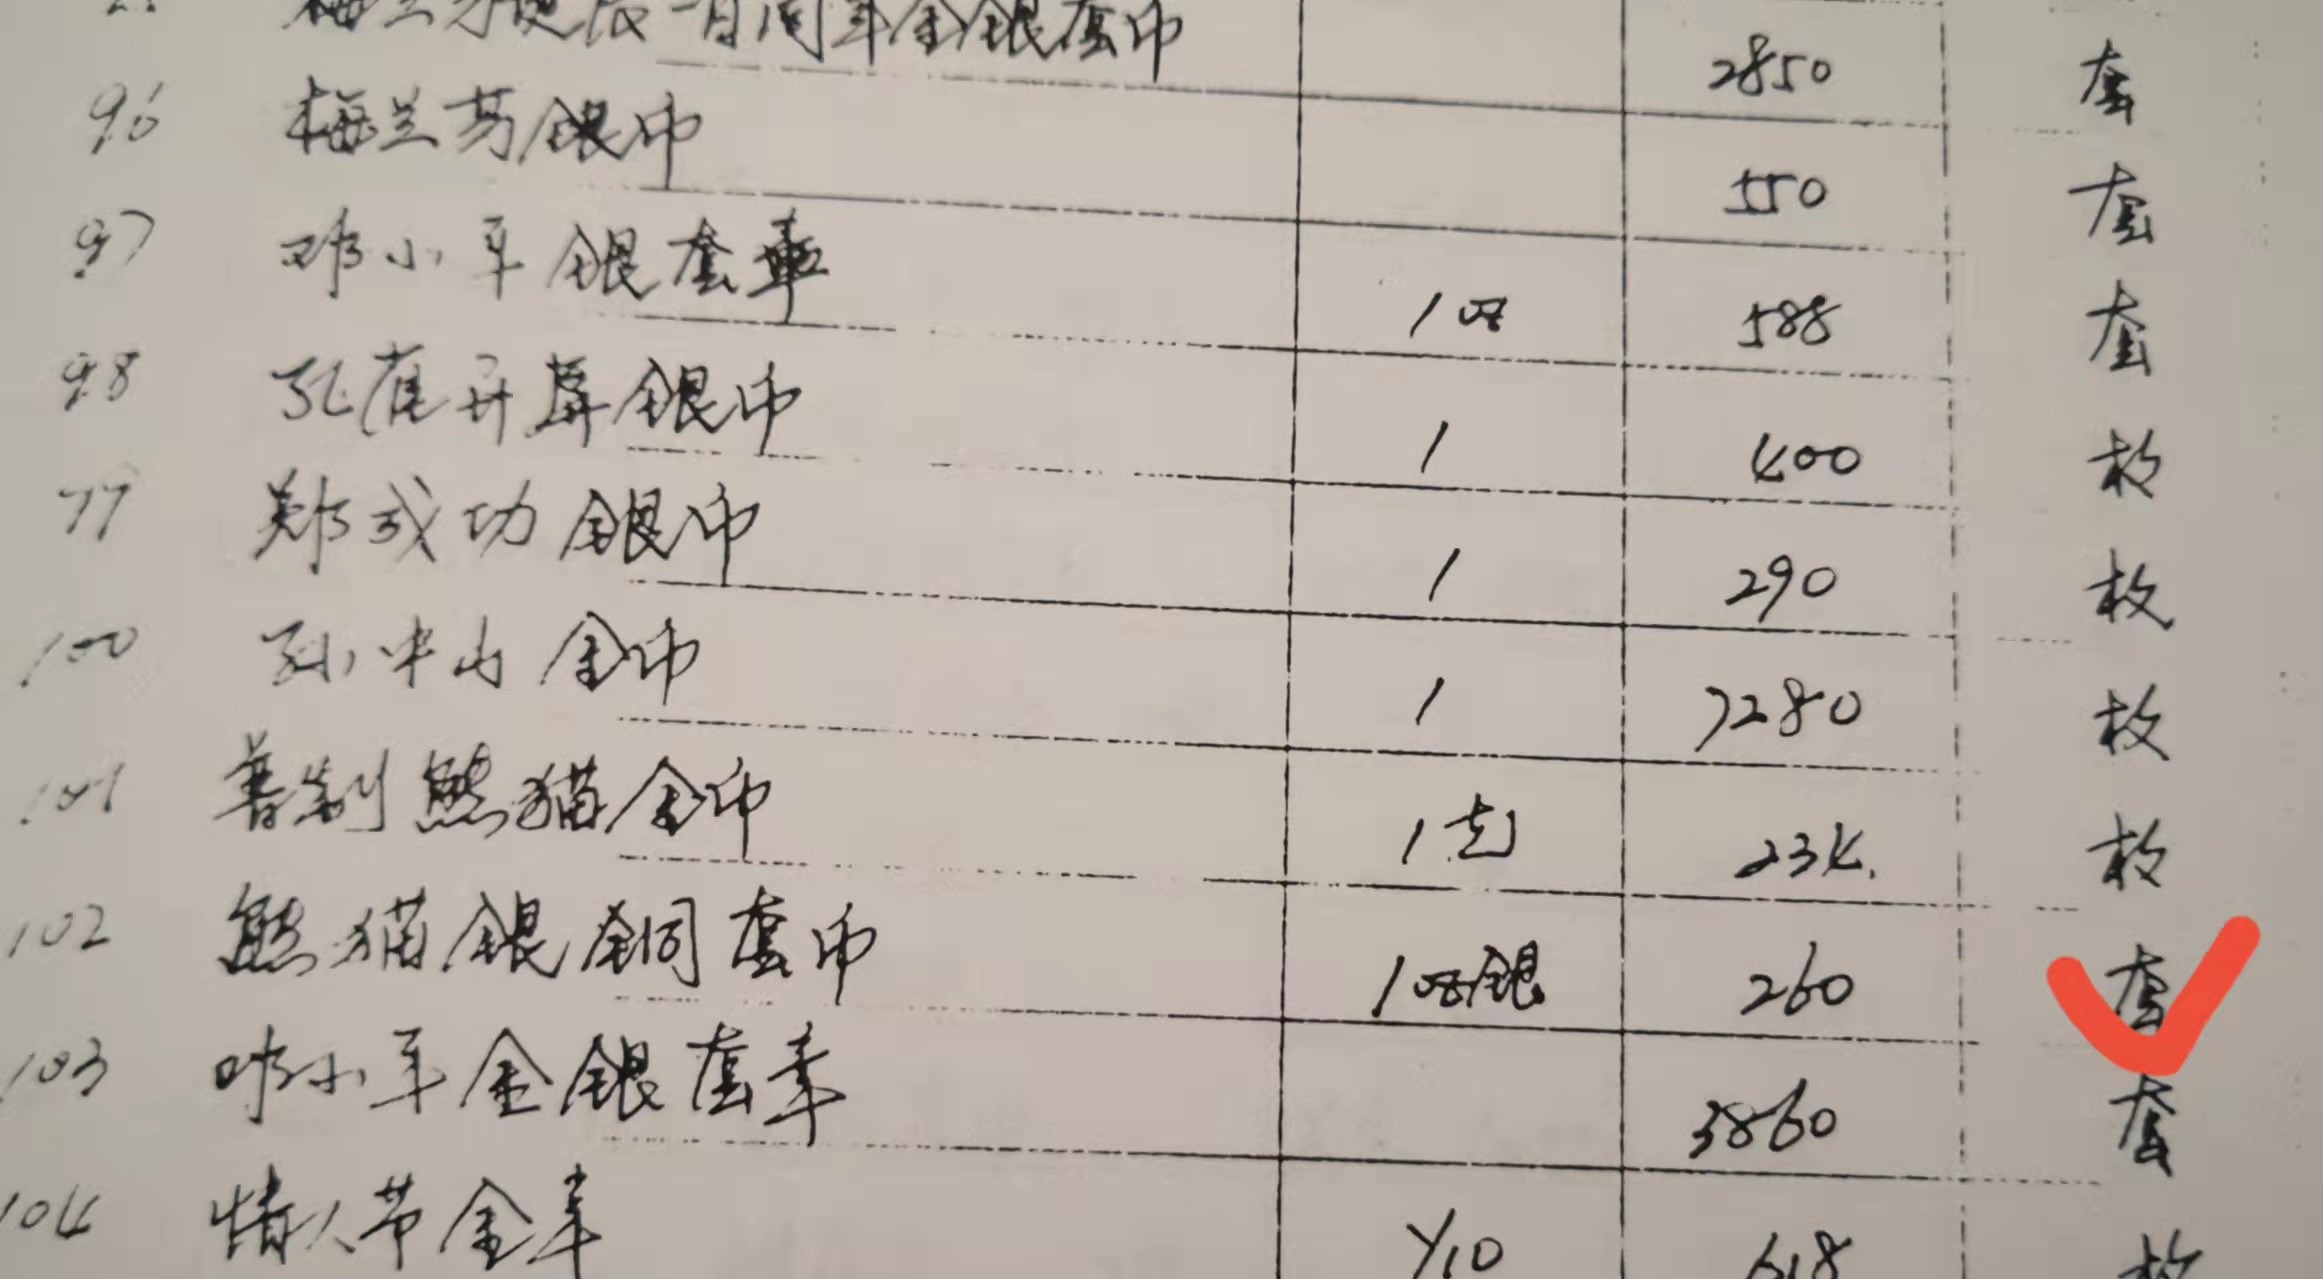 梅兰芳诞辰一百周年金银套币 2850 套
96 梅兰芳银币 550 套
97 邓小平银套章 1oz 588 套
98 孔雀开屏银币 1 400 枚
99 郑成功银币 1 290 枚
100 孙中山金币 1 7280 枚
101 普制熊猫金币 1克 234. 枚
102 熊猫银铜套币 1oz银 260 套
103 邓小平金银套章 3860 套
104 情人节金章 1/10 618 枚